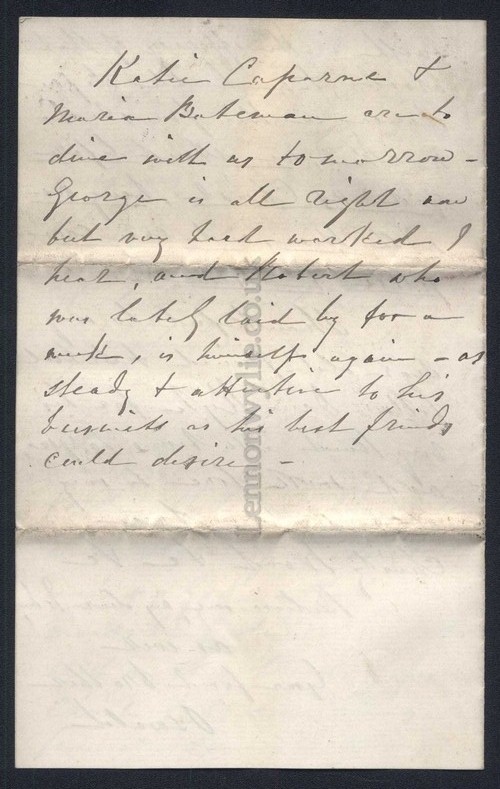 Katie Caparne &
Maria Bateman are to
dine with us tomorrow -
George is all right now
but very hard worked I
hear, and Robert who
was lately laid by for a
week, is himself again - as
steady & attentive to his
business as his best friends
could desire -
Lennonwylie.co.uk